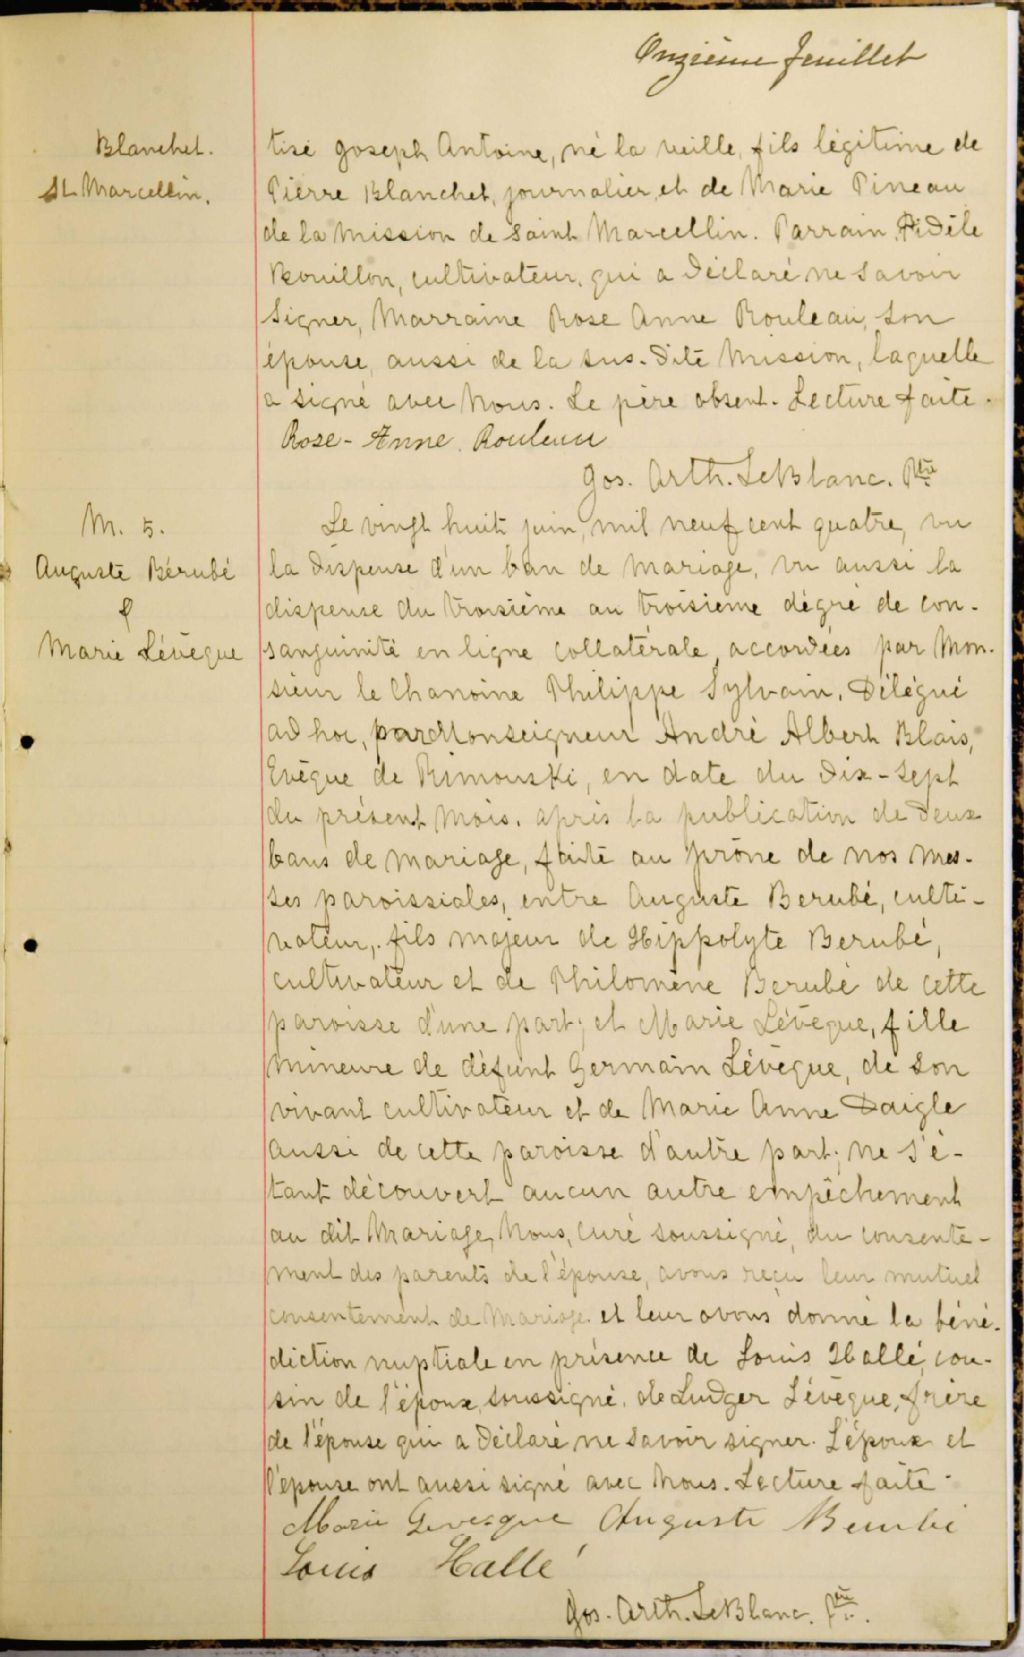 Onzième feuillet
Blanchet.
St Marcellin.
tisé Joseph Antoine, né la veille, fils légitime de
Pierre Blanchet, journalier, et de Marie Pineau
de la Mission de Saint Marcellin. Parrain, Fidèle
Bouillon, cultivateur, qui a déclaré ne savoir
Signer, Marraine Rose Anne Rouleau, son
épouse, aussi de la sus-dite Mission, laquelle
a signé avec Nous. Le père absent. Lecture faite.
Rose-Anne Rouleau
Jos. Arth. LeBlanc. Ptre
M. 5.
Auguste Bérubé
&
Marie Lévèque
Le vingt huit juin, mil neuf cent quatre, vu
la dispense d'un ban de mariage, vu aussi la
dispense du troisième au troisième dégré de con-
sanguinité en ligne collatérale, accordées par Mon-
sieur le Chanoine Philippe Sylvain, Délégué
ad hoc, par Monseigneur André Albert Blais,
Evêque de Rimouski, en date du dix-sept
du présent mois, après la publication de deux
bans de mariage, faite au prône de nos mes-
ses paroissiales, entre Auguste Berubé, culti-
vateur, fils majeur de Hippolyte Berubé,
cultivateur et de Philomène Berubé de cette
paroisse d'une part; et Marie Lévèque, fille
mineure de défunt Germain Lévèque, de son
vivant cultivateur et de Marie Anne Daigle
aussi de cette paroisse d'autre part; ne s'é-
tant découvert aucun autre empêchement
au dit Mariage, Nous, curé soussigné, du consente-
ment des parents de l'épouse, avons reçu leur mutuel
consentement de Mariage et leur avons donné la béné-
diction nuptiale en présence de Louis Hallé, cou-
sin de l'époux, soussigné, de Ludger Lévèque, frère
de l'épouse qui a déclaré ne savoir signer. L'époux et
l'épouse ont aussi signé avec Nous. Lecture faite.
Marie Levesque Auguste Berube
Louis Hallé
Jos. Arth. LeBlanc. Ptre.